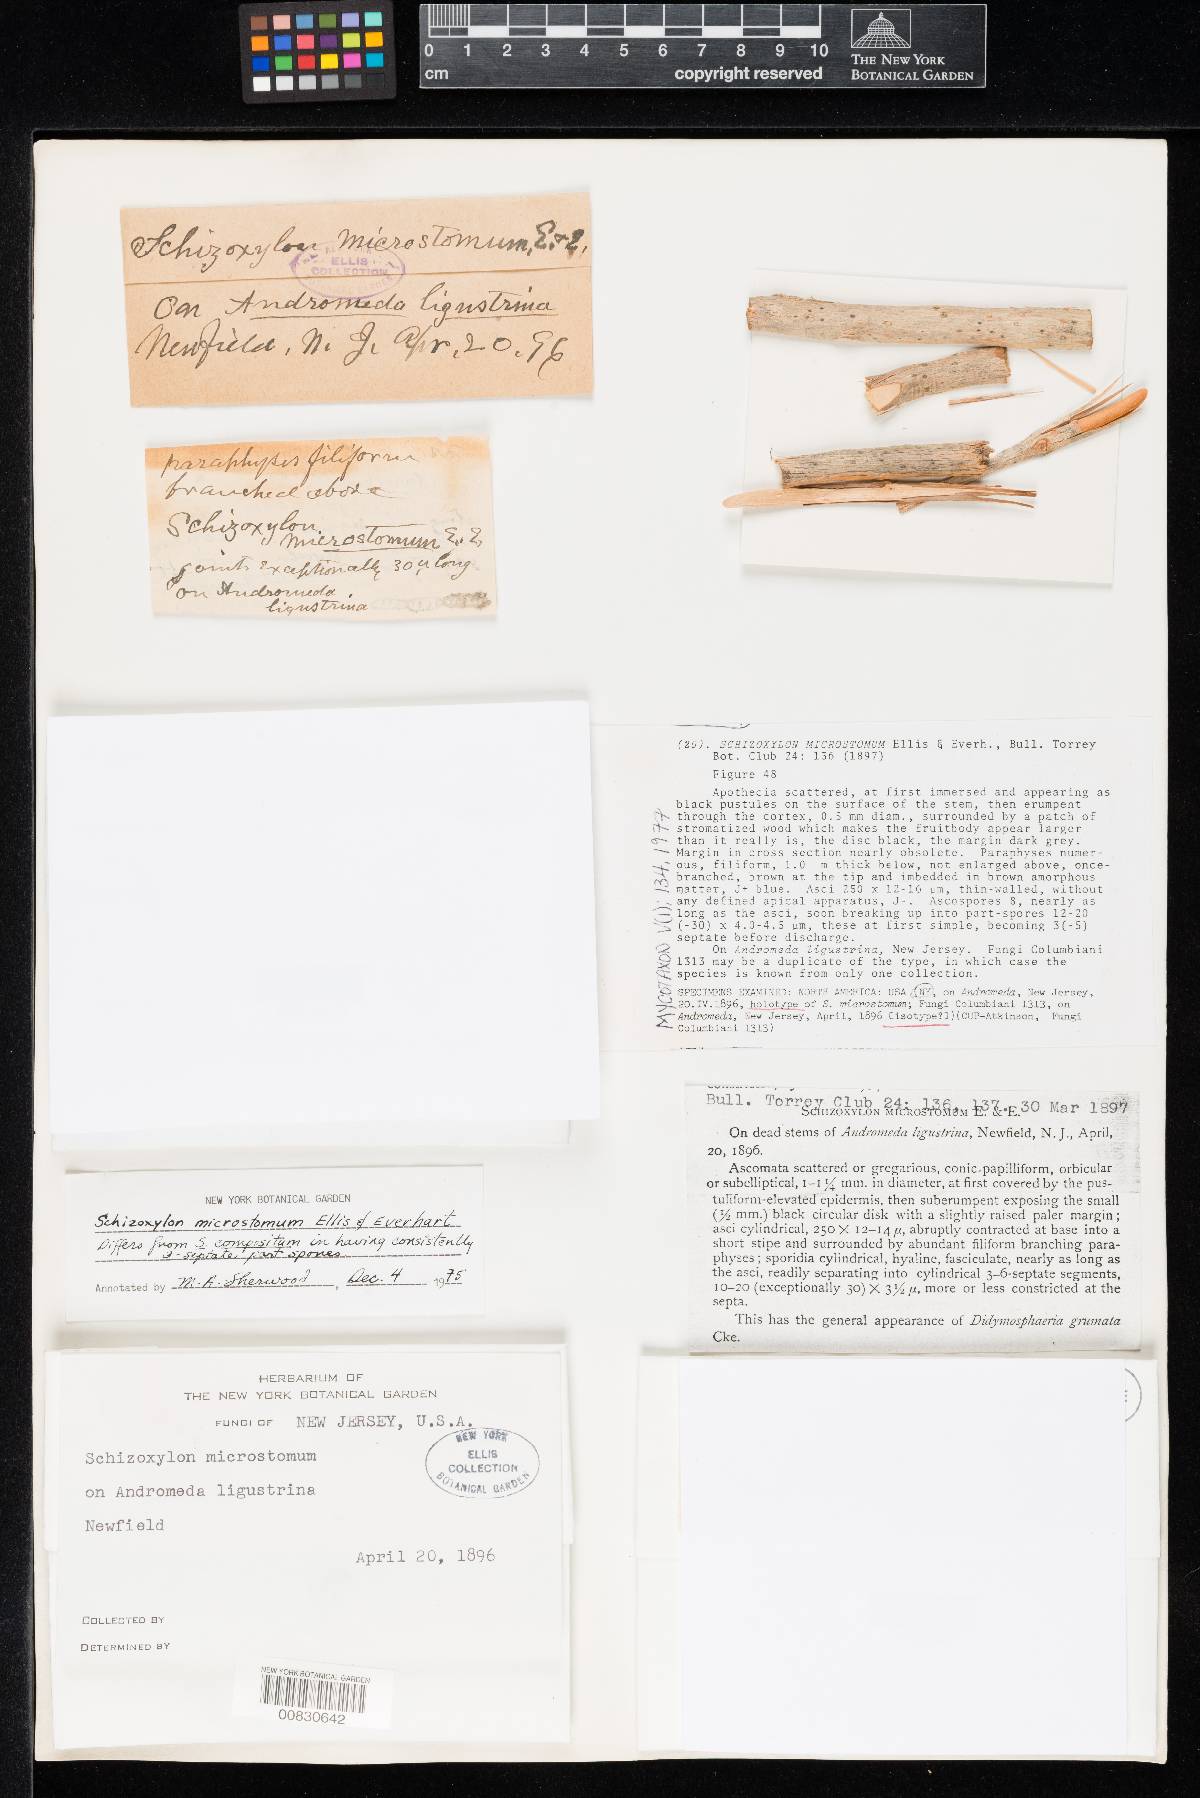 0 1 2 3 4 5 6 7 8 9 10
cm
copyright reserved
THE NEW YORK
BOTANICAL GARDEN
Schizoxylon microstomum, E. & E.
ELLIS
COLLECTION
On Andromeda ligustrina
Newfield, N. J. Apr. 20. 96
paraphyses filiform
branched above
Schizoxylon
microstomum E. E.
joints exceptionally 30 µ long
on Andromeda
ligustrina
(25). SCHIZOXYLON MICROSTOMUM Ellis & Everh., Bull. Torrey
Bot. Club 24: 136 (1897)
Figure 48
Apothecia scattered, at first immersed and appearing as
black pustules on the surface of the stem, then erumpent
through the cortex, 0.5 mm diam., surrounded by a patch of
stromatized wood which makes the fruitbody appear larger
than it really is, the disc black, the margin dark grey.
Margin in cross section nearly obsolete. Paraphyses numer-
ous, filiform, 1.0 m thick below, not enlarged above, once-
branched, brown at the tip and imbedded in brown amorphous
matter, J+ blue. Asci 250 x 12-16 µm, thin-walled, without
any defined apical apparatus, J-. Ascospores 8, nearly as
long as the asci, soon breaking up into part-spores 12-20
(-30) x 4.0-4.5 µm, these at first simple, becoming 3(-5)
septate before discharge.
On Andromeda ligustrina, New Jersey. Fungi Columbiani
1313 may be a duplicate of the type, in which case the
species is known from only one collection.
SPECIMENS EXAMINED: NORTH AMERICA: USA (NY), on Andromeda, New Jersey,
20.IV.1896, holotype of S. microstomum; Fungi Columbiani 1313, on
Andromeda, New Jersey, April, 1896 (isotype?)(CUP-Atkinson, Fungi
Columbiani 1313)
MYCOTAXON V(1): 134, 1977
Bull. Torrey Club 24: 136, 137. 30 Mar 1897
SCHIZOXYLON MICROSTOMUM E. & E.
On dead stems of Andromeda ligustrina, Newfield, N. J., April,
20, 1896.
Ascomata scattered or gregarious, conic-papilliform, orbicular
or subelliptical, 1-1¼ mm. in diameter, at first covered by the pus-
tuliform-elevated epidermis, then suberumpent exposing the small
(½ mm.) black circular disk with a slightly raised paler margin;
asci cylindrical, 250 × 12-14 µ, abruptly contracted at base into a
short stipe and surrounded by abundant filiform branching para-
physes; sporidia cylindrical, hyaline, fasciculate, nearly as long as
the asci, readily separating into cylindrical 3-6-septate segments,
10-20 (exceptionally 30) × 3½ µ, more or less constricted at the
septa.
This has the general appearance of Didymosphaeria grumata
Cke.
NEW YORK BOTANICAL GARDEN
Schizoxylon microstomum Ellis & Everhart
Differs from S. compositum in having consistently
3-septate part spores
Annotated by M. A. Sherwood, Dec. 4 1975
HERBARIUM OF
THE NEW YORK BOTANICAL GARDEN
FUNGI OF NEW JERSEY, U.S.A.
NEW YORK
ELLIS
COLLECTION
BOTANICAL GARDEN
Schizoxylon microstomum
on Andromeda ligustrina
Newfield
April 20, 1896
COLLECTED BY
DETERMINED BY
NEW YORK BOTANICAL GARDEN
00830642